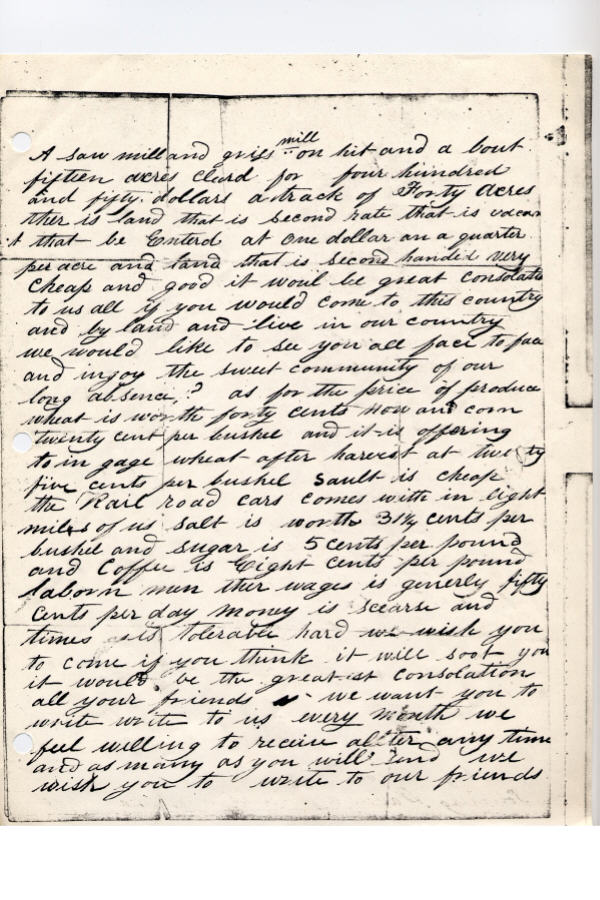 mill
A saw mill and griss on hit and a bout
fiftien acres cleard for four hundred
and fifty dollars a track of Forty acres
ther is land that is second rate that is vacan
t that be Enterd at one dollar an a quarter
per acre and land that is second handed very
cheap and good it woul be great consolatio
to us all if you would come to this country
and by land and live in our country
we would like to see you all face to face
and injoy the sweet community of our
long absence,? as for the price of produce
wheat is worth forty cents now and corn
twenty cent per bushel and it is offering
to in gage wheat after harvest at twenty
five cents per bushel Sault is cheap
the Rail road cars comes with in Eight
miles of us salt is worth 31¼ cents per
bushel and sugar is 5 cents per pound
and Coffee is Eight cents per pound
laborn men ther wages is generly fifty
cents per day money is scearse and
times is tolerable hard we wish you
to come if you think it will soot you
it would be the greatest consolation
all your friends we want you to
write write to us every Month we
feel willing to receive alter any time
and as many as you will send we
wish you to write to our friends